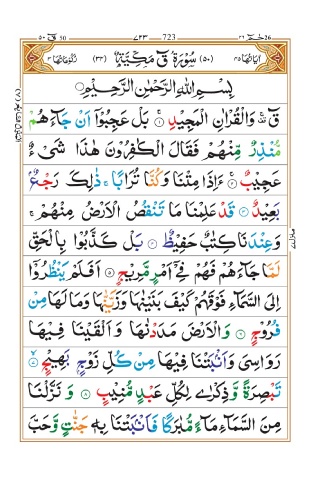 ق ٥٠ ٧٢٣ 723 حٰمٓ 26
اٰيَاتُهَا ٤٥ (٥٠) سُوْرَةُ قٓ مَكِّيَّةٌ (٣٤) رُكُوْعَاتُهَا ٣
بِسْمِ اللّٰهِ الرَّحْمٰنِ الرَّحِيْمِ
قٓ ۚ وَالْقُرْاٰنِ الْمَجِيْدِ ۚ‏ ۱ بَلْ عَجِبُوْۤا اَنْ جَآءَهُمْ
مُّنْذِرٌ مِّنْهُمْ فَقَالَ الْكٰفِرُوْنَ هٰذَا شَىْءٌ
عَجِيْبٌ ۚ ۲ ءَاِذَا مِتْنَا وَكُنَّا تُرَابًا ۚ ذٰلِكَ رَجْعٌۢ
بَعِيْدٌ ۳ قَدْ عَلِمْنَا مَا تَنْقُصُ الْاَرْضُ مِنْهُمْ ۚ
وَعِنْدَنَا كِتٰبٌ حَفِيْظٌ ۴ بَلْ كَذَّبُوْا بِالْحَقِّ
لَمَّا جَآءَهُمْ فَهُمْ فِىْۤ اَمْرٍ مَّرِيْجٍ ۵ اَفَلَمْ يَنْظُرُوْۤا
اِلَى السَّمَآءِ فَوْقَهُمْ كَيْفَ بَنَيْنٰهَا وَزَيَّنّٰهَا وَمَا لَهَا مِنْ
فُرُوْجٍ ۶ وَالْاَرْضَ مَدَدْنٰهَا وَاَلْقَيْنَا فِيْهَا
رَوَاسِىَ وَاَنْۢبَتْنَا فِيْهَا مِنْ كُلِّ زَوْجٍۢ بَهِيْجٍ ۙ ۷
تَبْصِرَةً وَّذِكْرٰى لِكُلِّ عَبْدٍ مُّنِيْبٍ ۸ وَنَزَّلْنَا
مِنَ السَّمَآءِ مَآءً مُّبٰرَكًا فَاَنْۢبَتْنَا بِهٖ جَنّٰتٍ وَّحَبَّ